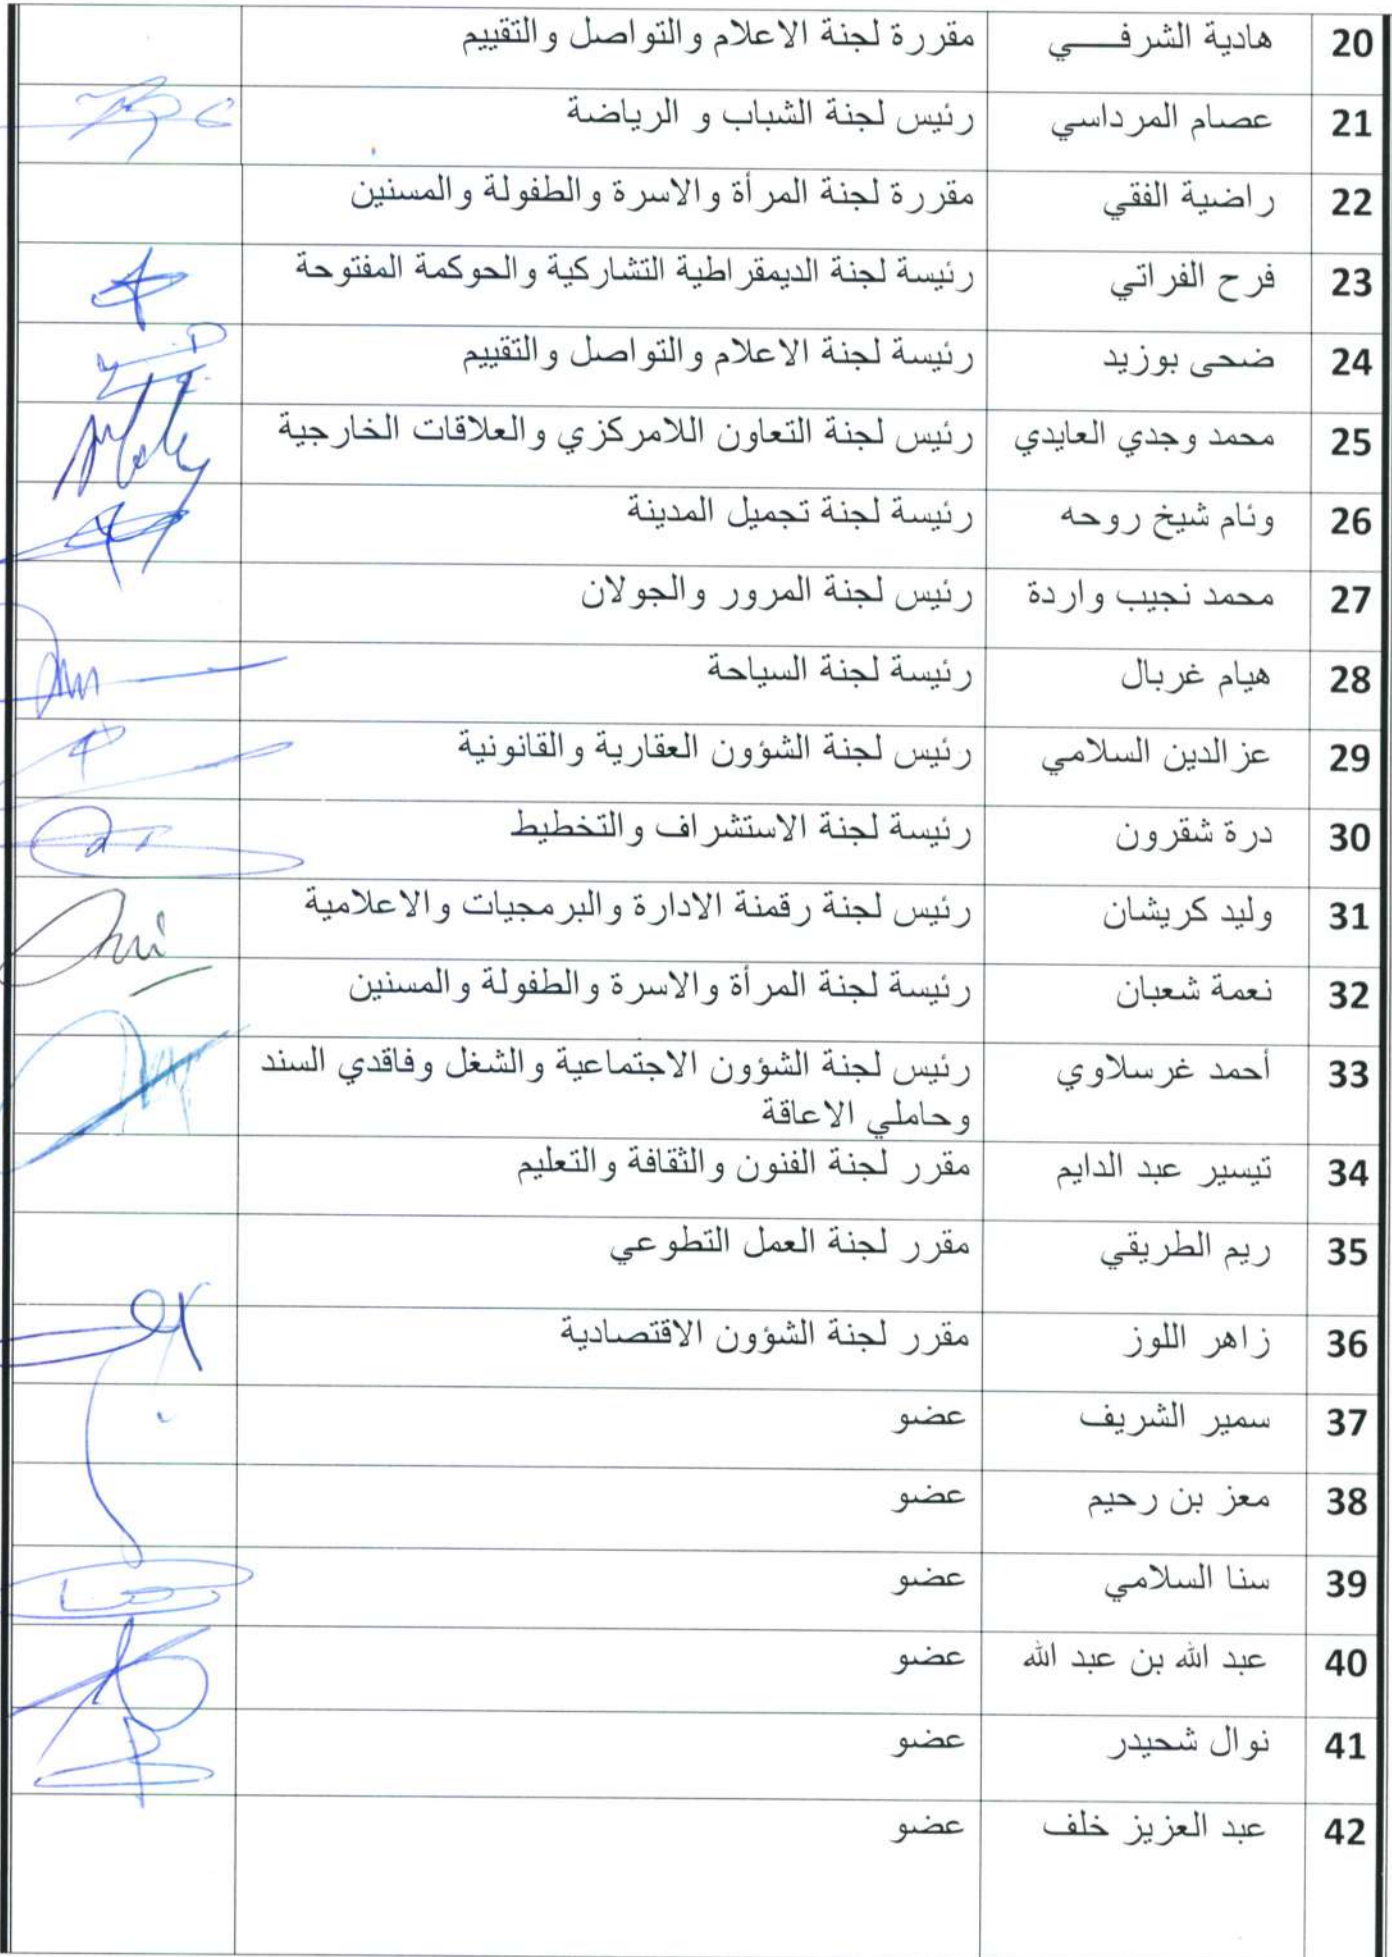 20 هادية الشرفـــي مقررة لجنة الاعلام والتواصل والتقييم
21 عصام المرداسي رئيس لجنة الشباب و الرياضة
22 راضية الفقي مقررة لجنة المرأة والاسرة والطفولة والمسنين
23 فرح الفراتي رئيسة لجنة الديمقراطية التشاركية والحوكمة المفتوحة
24 ضحى بوزيد رئيسة لجنة الاعلام والتواصل والتقييم
25 محمد وجدي العايدي رئيس لجنة التعاون اللامركزي والعلاقات الخارجية
26 وئام شيخ روحه رئيسة لجنة تجميل المدينة
27 محمد نجيب واردة رئيس لجنة المرور والجولان
28 هيام غربال رئيسة لجنة السياحة
29 عزالدين السلامي رئيس لجنة الشؤون العقارية والقانونية
30 درة شقرون رئيسة لجنة الاستشراف والتخطيط
31 وليد كريشان رئيس لجنة رقمنة الادارة والبرمجيات والاعلامية
32 نعمة شعبان رئيسة لجنة المرأة والاسرة والطفولة والمسنين
33 أحمد غرسلاوي رئيس لجنة الشؤون الاجتماعية والشغل وفاقدي السند
وحاملي الاعاقة
34 تيسير عبد الدايم مقرر لجنة الفنون والثقافة والتعليم
35 ريم الطريقي مقرر لجنة العمل التطوعي
36 زاهر اللوز مقرر لجنة الشؤون الاقتصادية
37 سمير الشريف عضو
38 معز بن رحيم عضو
39 سنا السلامي عضو
40 عبد الله بن عبد الله عضو
41 نوال شحيدر عضو
42 عبد العزيز خلف عضو